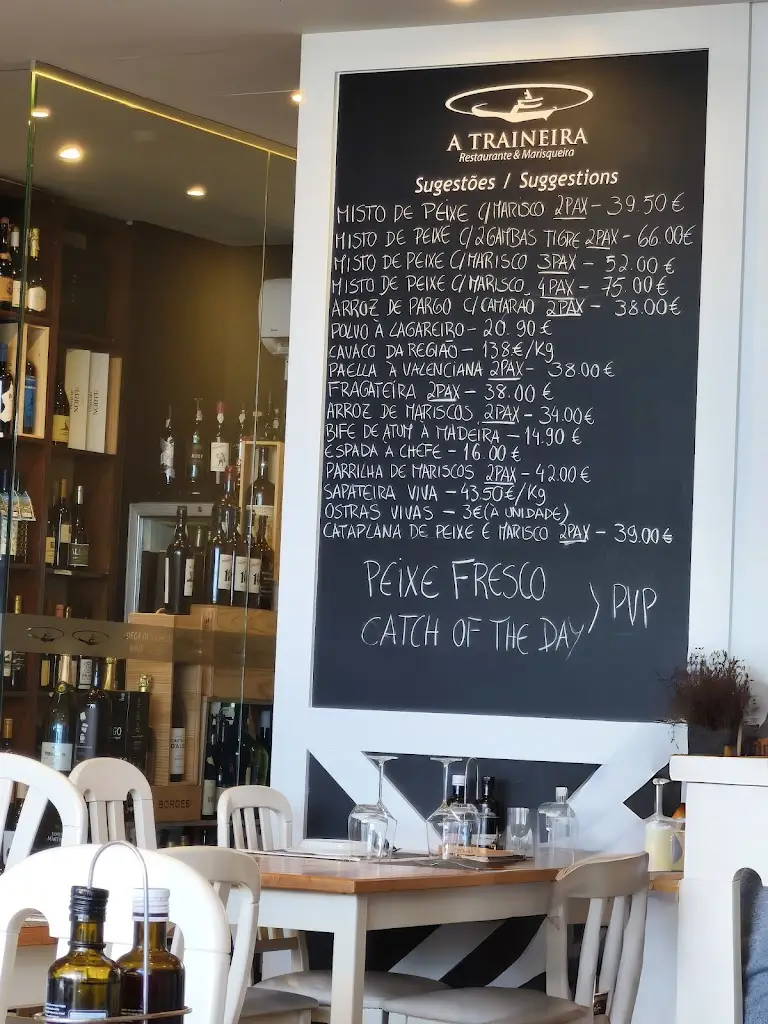 A TRAINEIRA
Restaurante & Marisqueira
Sugestões / Suggestions
MISTO DE PEIXE C/MARISCO 2PAX - 39.50 €
MISTO DE PEIXE C/2GAMBAS TIGRE 2PAX - 66.00€
MISTO DE PEIXE C/MARISCO 3PAX - 52.00 €
MISTO DE PEIXE C/MARISCO 4PAX - 75.00 €
ARROZ DE PARGO C/CAMARÃO 2PAX - 38.00€
POLVO À LAGAREIRO - 20.90 €
CAVACO DA REGIÃO - 138€/Kg
PAELLA À VALENCIANA 2PAX - 38.00€
FRAGATEIRA 2PAX - 38.00 €
ARROZ DE MARISCOS 2PAX - 34.00€
BIFE DE ATUM À MADEIRA - 14.90 €
ESPADA À CHEFE - 16.00 €
PARRILHA DE MARISCOS 2PAX - 42.00€
SAPATEIRA VIVA - 43.50€/Kg
OSTRAS VIVAS - 3€(À UNIDADE)
CATAPLANA DE PEIXE E MARISCO 2PAX - 39.00€
PEIXE FRESCO
CATCH OF THE DAY > PVP
BORGES